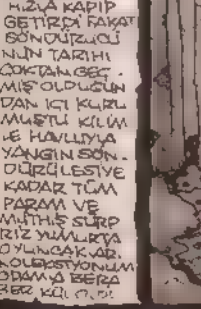 HIZLA KAPIP
GETİRDİ FAKAT
SÖNDÜRÜCÜ
NÜN TARİHİ
ÇOKTAN GEÇ-
MİŞ OLDUĞUN
DAN İÇİ KURU
MUŞTU KİLİM
VE HAVLUYLA
YANGIN SÖN-
DÜRÜLESİYE
KADAR TÜM
PARAM VE
MÜTHİŞ SÜRP
RİZ YUMURTA
OYUNCAKLAR.
KOLEKSİYONUM
ODAMLA BERA
BER KÜL OLDU